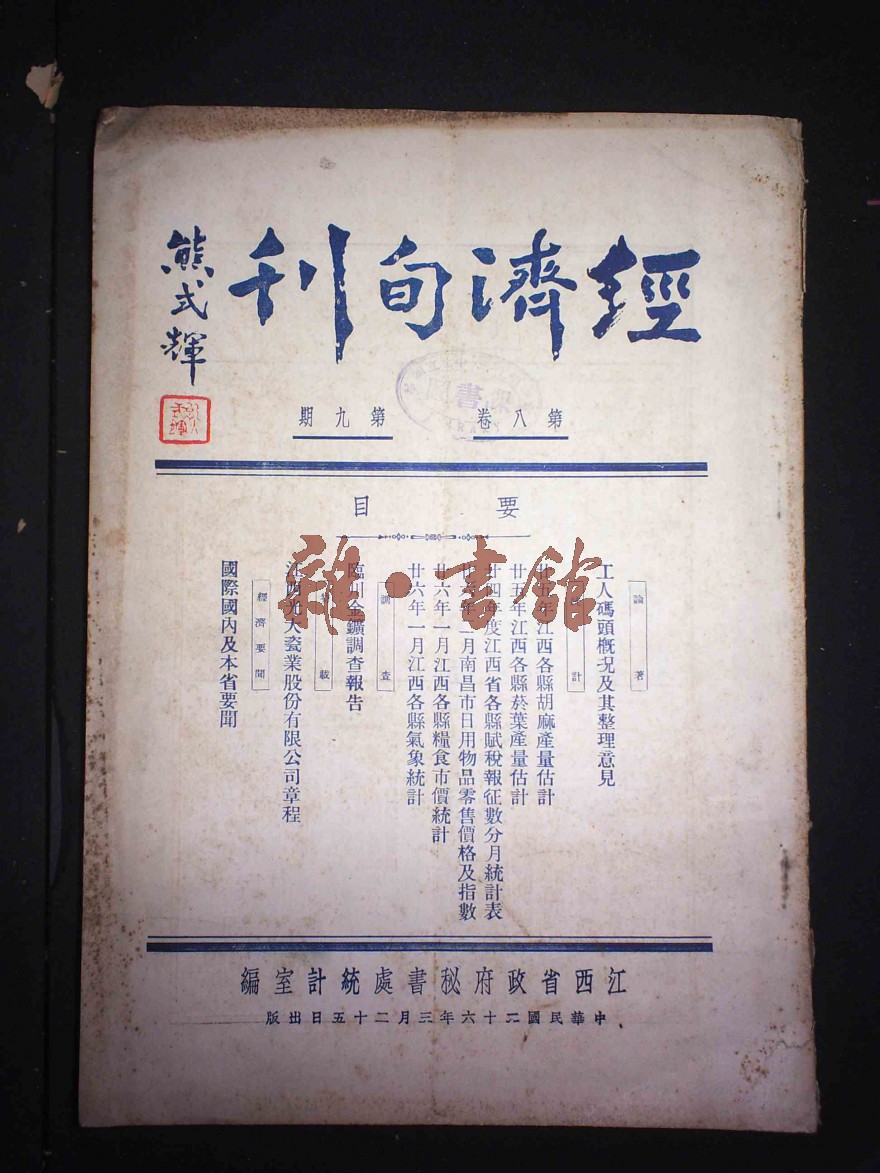 經濟旬刊
熊式輝
第八卷 第九期
要目
論著
工人碼頭概況及其整理意見
計
廿五年江西各縣胡麻產量估計
廿五年江西各縣菸葉產量估計
廿四年度江西省各縣賦稅報征數分月統計表
廿六年一月南昌市日用物品零售價格及指數
廿六年一月江西各縣糧食市價統計
廿六年一月江西各縣氣象統計
調查
臨川金鑛調查報告
載
江西光大瓷業股份有限公司章程
經濟要聞
國際國內及本省要聞
雜·書館
江西省政府秘書處統計室編
中華民國二十六年三月二十五日出版